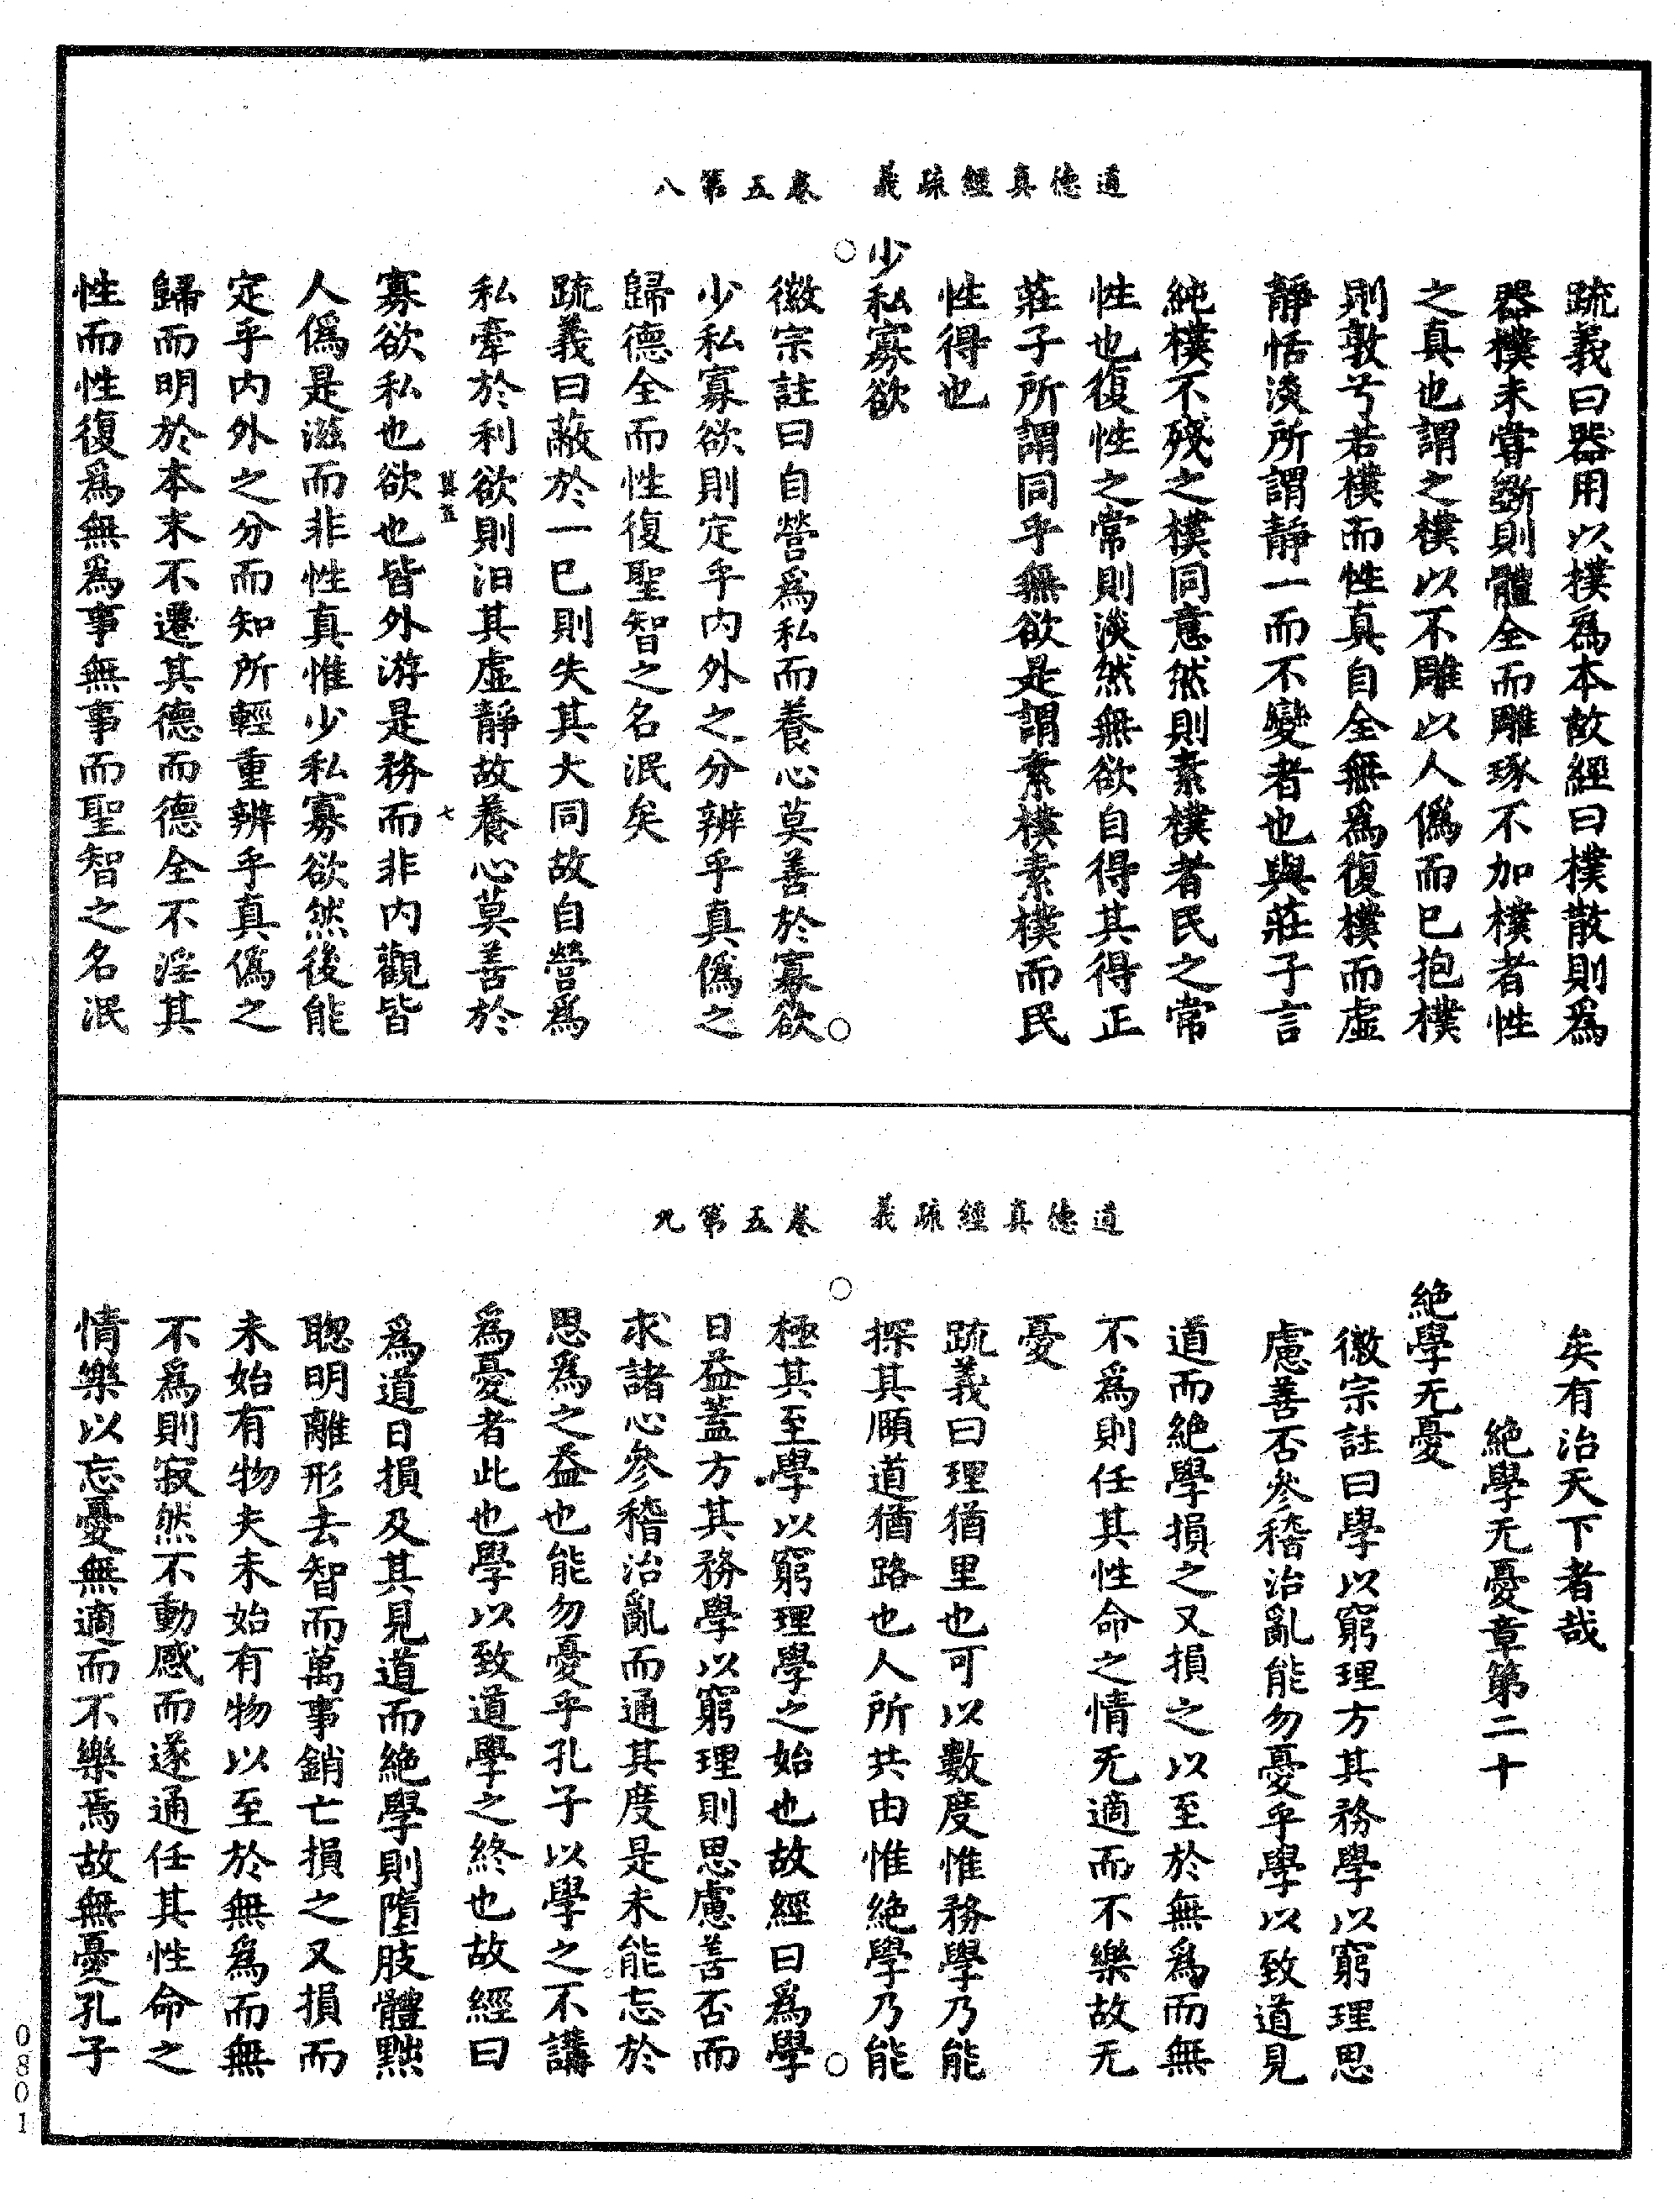 道德真經疏義　卷五第八
疏義曰器用以樸爲本故經曰樸散則爲
器樸未嘗斲則體全而雕琢不加樸者性
之真也謂之樸以不雕以人僞而已抱樸
則敦兮若樸而性真自全無爲復樸而虛
靜恬淡所謂靜一而不變者也與莊子言
純樸不殘之樸同意然則素樸者民之常
性也復性之常則淡然無欲自得其得正
莊子所謂同乎無欲是謂素樸素樸而民
性得也
少私寡欲
徽宗註曰自營爲私而養心莫善於寡欲
少私寡欲則定乎内外之分辨乎真僞之
歸德全而性復聖智之名泯矣
疏義曰蔽於一已則失其大同故自營爲
私牽於利欲則汨其虛靜故養心莫善於
七
寡欲私也欲也皆外游是務而非内觀皆
人僞是滋而非性真惟少私寡欲然後能
定乎内外之分而知所輕重辨乎真僞之
歸而明於本末不遷其德而德全不淫其
性而性復爲無爲事無事而聖智之名泯
道德真經疏義　卷五第九
矣有治天下者哉
絕學无憂章第二十
絕學无憂
徽宗註曰學以窮理方其務學以窮理思
慮善否參稽治亂能勿憂乎學以致道見
道而絕學損之又損之以至於無爲而無
不爲則任其性命之情无適而不樂故无
憂
疏義曰理猶里也可以數度惟務學乃能
探其頤道猶路也人所共由惟絕學乃能
極其至學以窮理學之始也故經曰爲學
日益蓋方其務學以窮理則思慮善否而
求諸心參稽治亂而通其度是未能忘於
思爲之益也能勿憂乎孔子以學之不講
爲憂者此也學以致道學之終也故經曰
爲道日損及其見道而絕學則墮肢體黜
聰明離形去智而萬事銷亡損之又損而
未始有物夫未始有物以至於無爲而無
不爲則寂然不動感而遂通任其性命之
情樂以忘憂無適而不樂焉故無憂孔子
0801